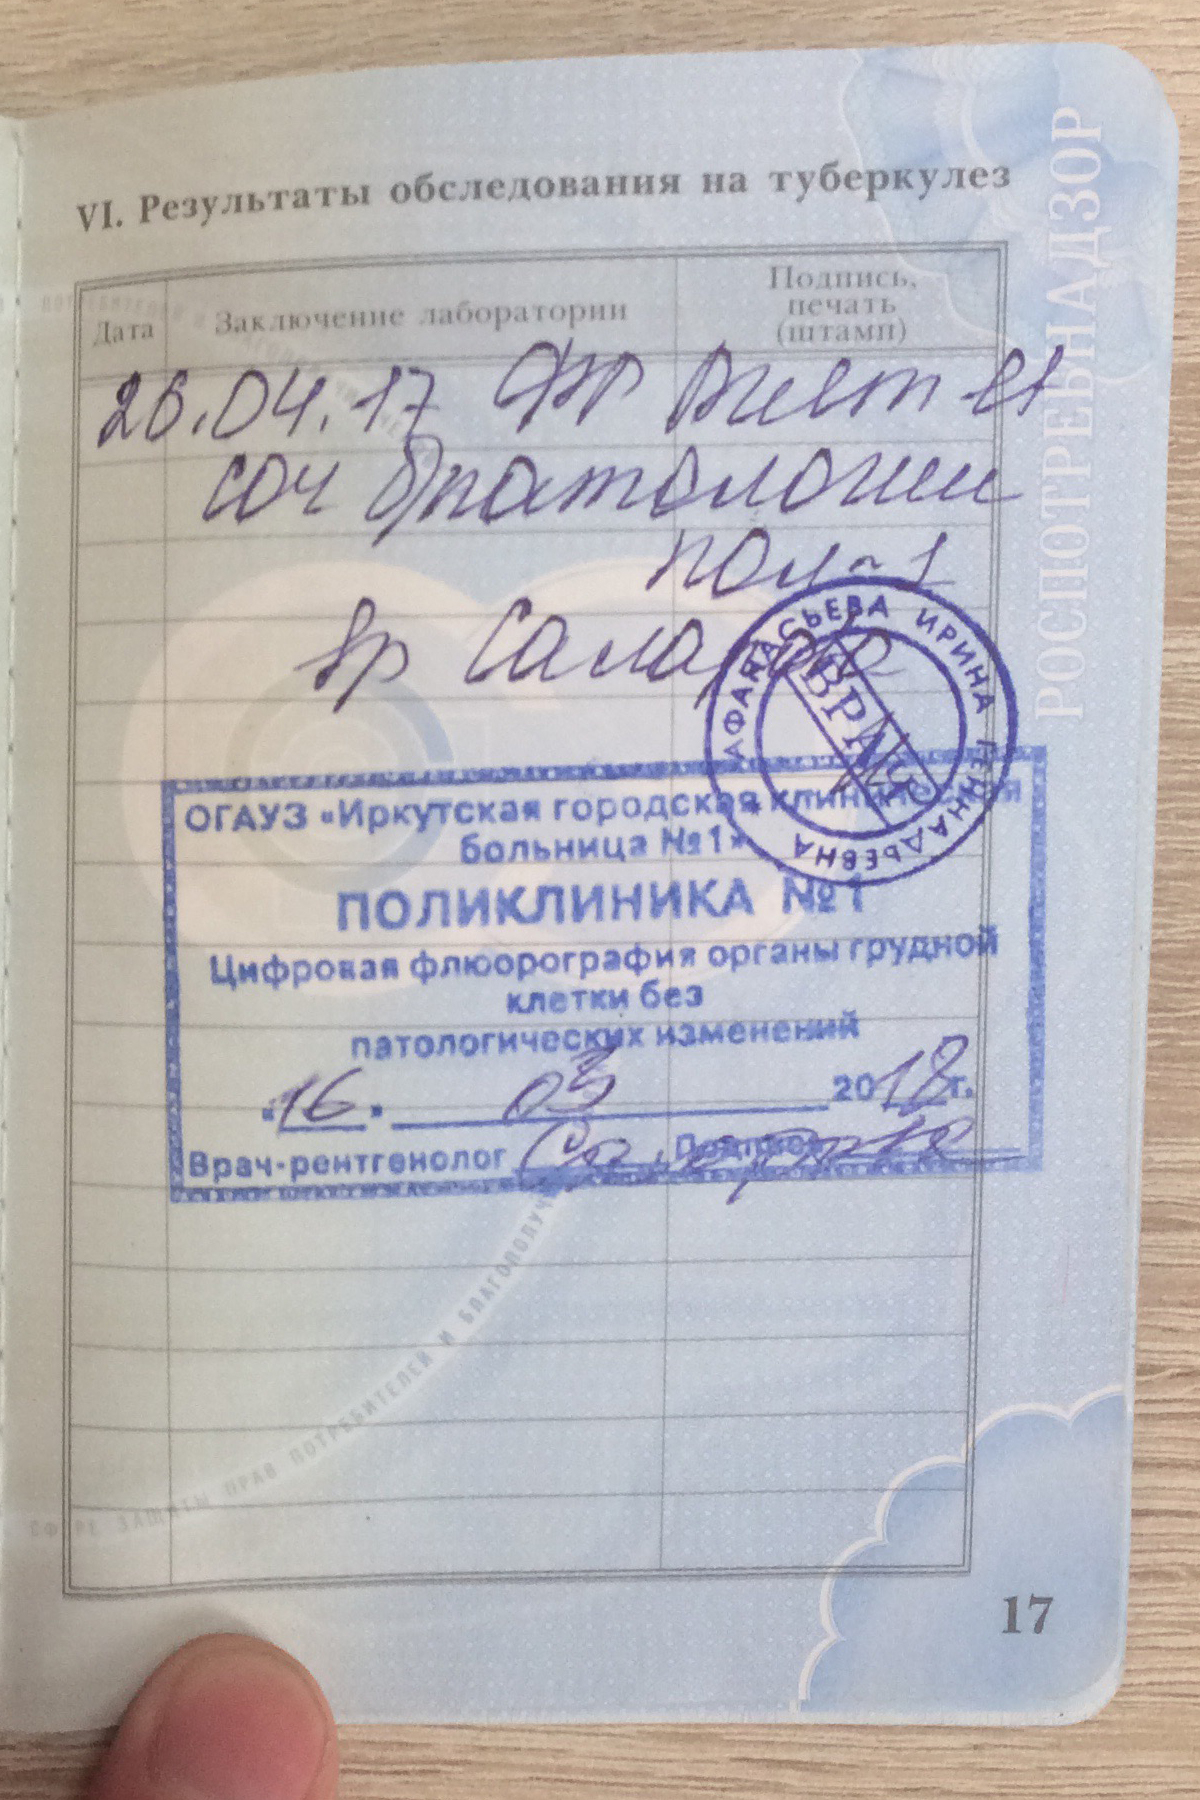 VI. Результаты обследования на туберкулез
Дата
Заключение лаборатории
Подпись,
печать
(штамп)
26.04.17
патологии
пол-1
вр
АФАНАСЬЕВА ИРИНА ГЕННАДЬЕВНА
ВРАЧ
ОГАУЗ «Иркутская городская клиническая
больница №1»
ПОЛИКЛИНИКА №1
Цифровая флюорография органы грудной
клетки без
патологических изменений
«16» 03 2018 г.
Врач-рентгенолог
Подпись
РОСПОТРЕБНАДЗОР
СФЕРЕ ЗАЩИТЫ ПРАВ ПОТРЕБИТЕЛЕЙ И БЛАГОПОЛУЧ
17